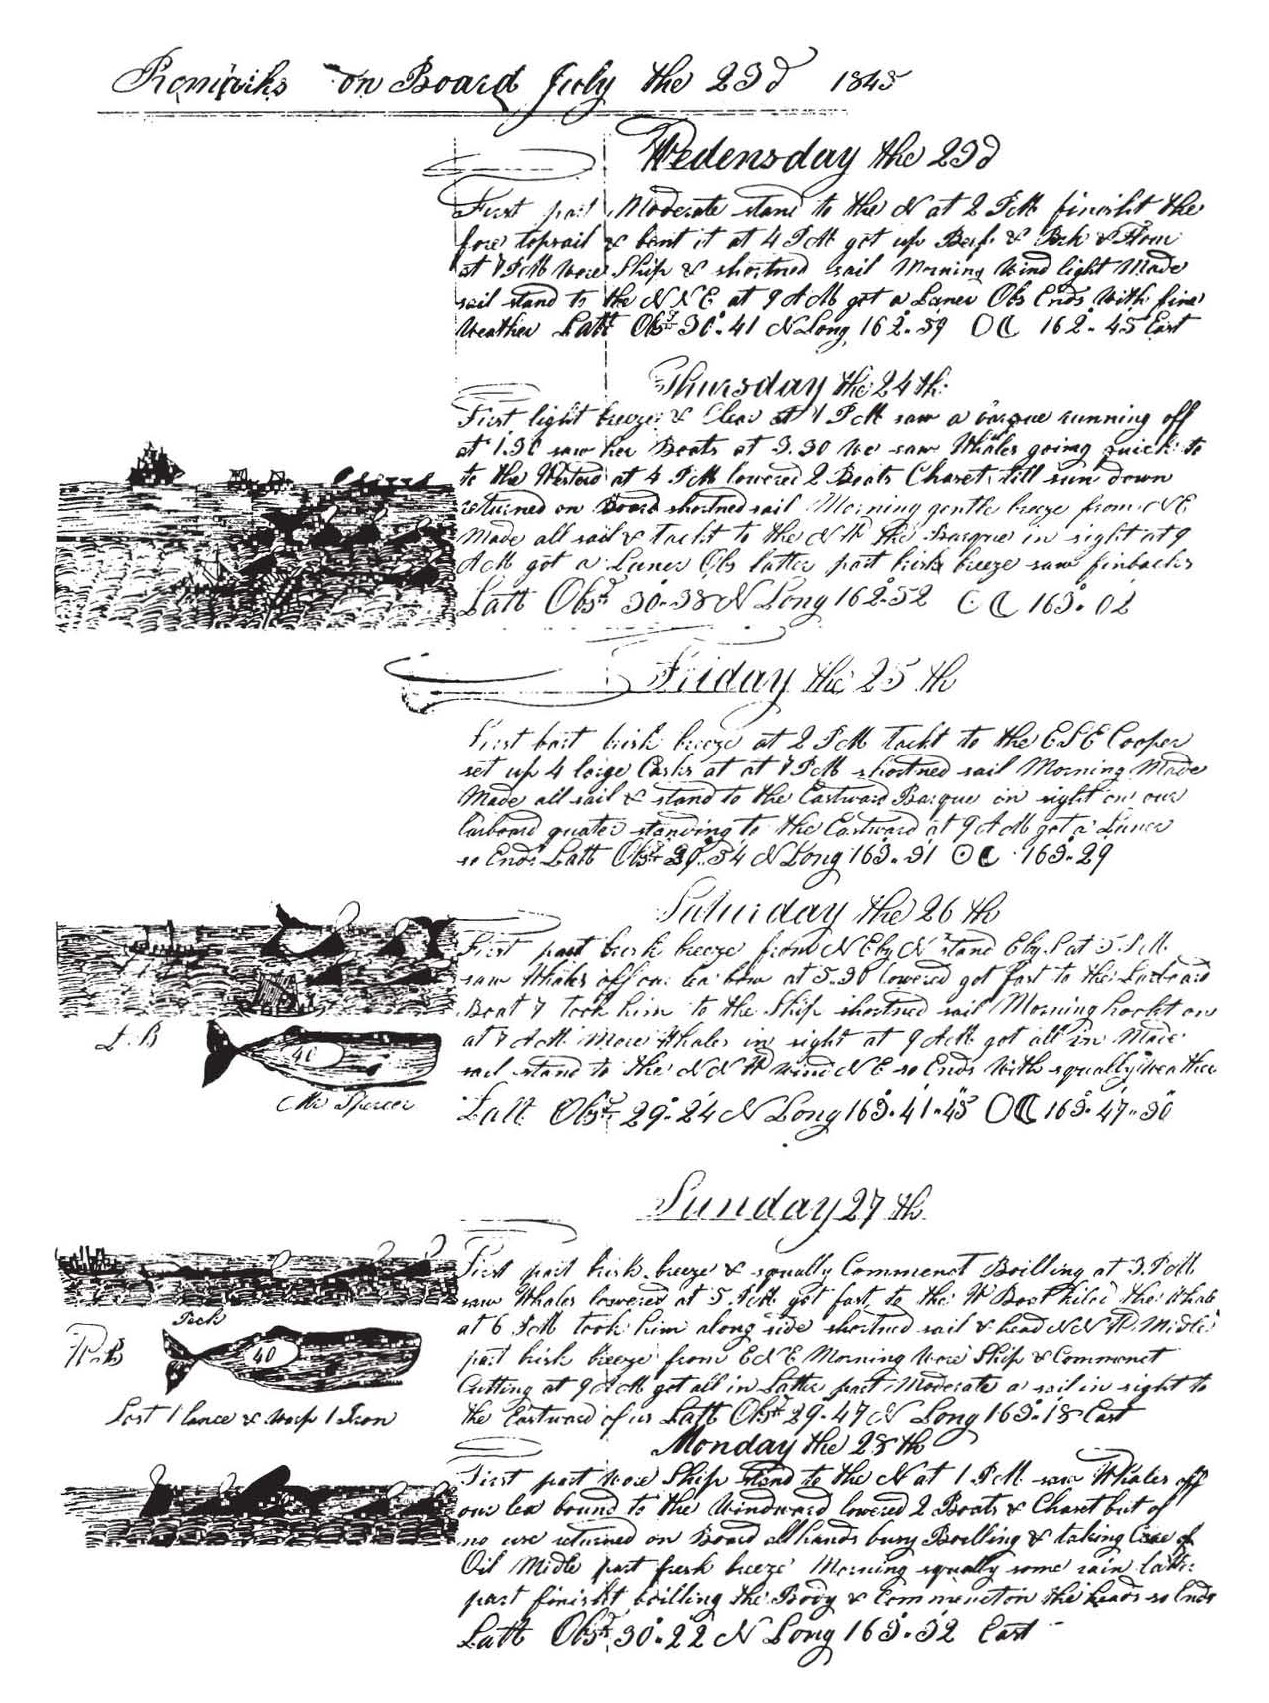 Remarks on Board July the 23d 1845
Wedensday the 23d
First part Moderate stand to the N at 2 PM finisht the
fore topsail & bent it at 4 PM got up Beef & Pork & Flour
at 7 PM wore Ship & shortned sail Morning wind light Made
sail stand to the NNE at 9 AM got a Laner Obs Ends with fine
Weather Latt Obsd 30°.41 N Long 162°.59 162°.45 East
Thursday the 24th
First light breeze & Clear at 1 PM saw a barque running off
at 1.30 saw her Boats at 3.30 we saw Whales going quick to
to the Westerd at 4 PM lowered 2 Boats Chaset till sun down
returned on Board shortned sail Morning gentle breeze from NE
Made all sail & tackt to the NW the Barque in sight at 9
AM got a Luner Obs latter part brisk breeze saw finbacks
Latt Obsd 30°.38 N Long 162°.52 163°.02
Friday the 25 th
First part brisk breeze at 2 PM tackt to the ESE Cooper
set up 4 large Casks at at 7 PM shortned sail Morning Made
Made all sail & stand to the Eastward Barque in sight on our
larboard quater standing to the Eastward at 9 AM got a Luner
so Ends Latt Obsd 54 N Long 163°.31 163°.29
Saturday the 26 th
First part brisk breeze from NE by N stand E by S at 5 PM
saw Whales off our lea bow at 5.30 lowered got fast to the Larboard
Boat 7 took him to the Ship shortned sail Morning hookt on
at 7 AM More Whales in sight at 9 AM got all in Made
L.B
40
sail stand to the NNW wind NE so Ends With squally weather
Mr Spencer
Latt Obsd 29°.24 N Long 163°.41'.45" 163°.47".30"
Sunday 27 th
First part brisk breeze & squally Commenct Boilling at 3 PM
saw Whales lowered at 5 PM got fast to the W Boat kiled the whale
at 6 PM took him along side shortned sail & head NNW Midle
W.B
40
part brisk breeze from ENE Morning wore Ship & Commenct
Cutting at 9 AM got all in Latter part Moderate a sail in sight to
Lost 1 lance & warp 1 Iron
the Eastward of us Latt Obsd 29.47 N Long 163°.18 East
Monday the 28 th
First part wore Ship stand to the N at 1 PM saw Whales off
our lea bound to the Windward lowered 2 Boats & Chaset but of
no use returned on Board all hands busy Boilling & taking Care of
Oil Midle part fresh breeze Morning squally some rain latter
part finisht boilling the Body & Commenct on the heads so Ends
Latt Obsd 30°.22 N Long 163°.32 East